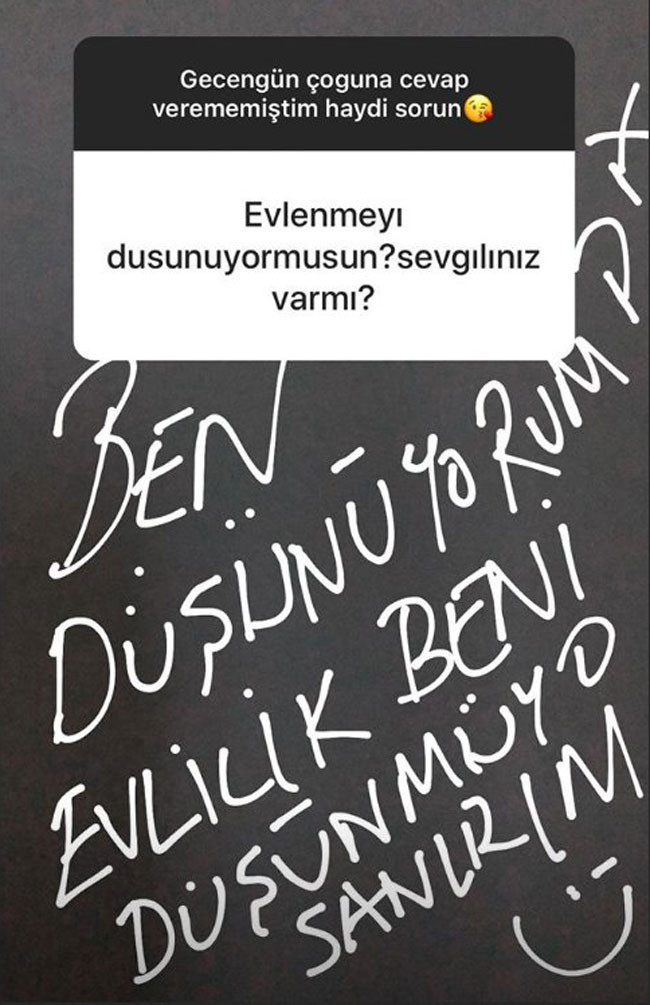 Gecengün çoguna cevap
verememiştim haydi sorun😘
Evlenmeyı
dusunuyormusun?sevgılınız
varmı?
BEN
DÜŞÜNÜYORUM DA
EVLİLİK BENİ
DÜŞÜNMÜYO
SANIRIM